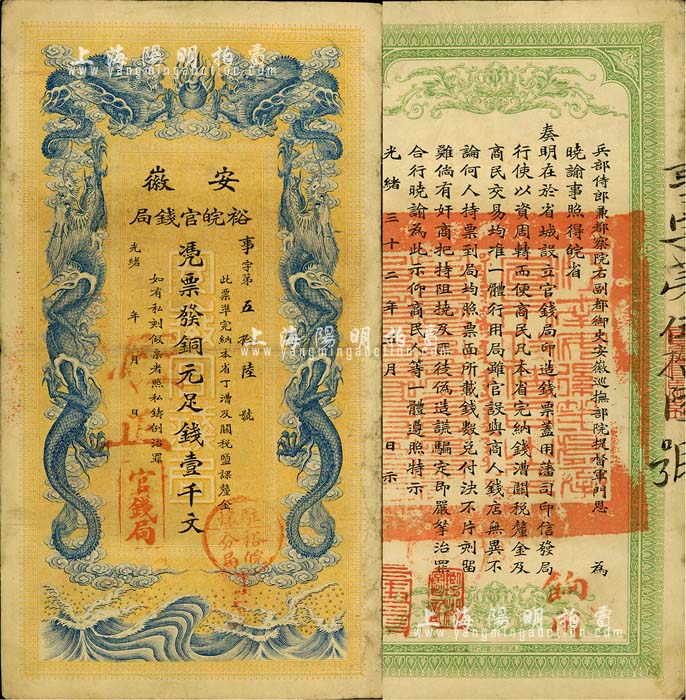 上海陽明拍賣
www.yangmingauction.com
安徽
裕皖官錢局
事字第五拾陸號
憑票發銅元足錢壹千文
此票準完納本省丁漕及關稅鹽課釐金
如有私刻假票者照私鑄例治罪
光緒 年 月 日
官錢局
上海陽明拍賣
www.yangmingauction.com
兵部侍郎兼都察院右副都御史安徽巡撫部院提督軍門恩 為
曉諭事照得皖省
奏明在於省城設立官錢局印造錢票蓋用藩司印信發局
行使以資周轉而便商民凡本省完納錢漕關稅釐金及
商民交易均准一體行用局雖官設與商人錢店無異不
論何人持票到局均照票面所載錢數兌付決不片刻留
難倘有奸商把持阻撓及匪徒偽造誆騙定即嚴拏治罪
合行曉諭為此示仰商民人等一體遵照特示
光緒三十二年 月 日示
上海陽明拍賣
www.yangmingauction.com
上海陽明拍賣
www.yangmingauction.com